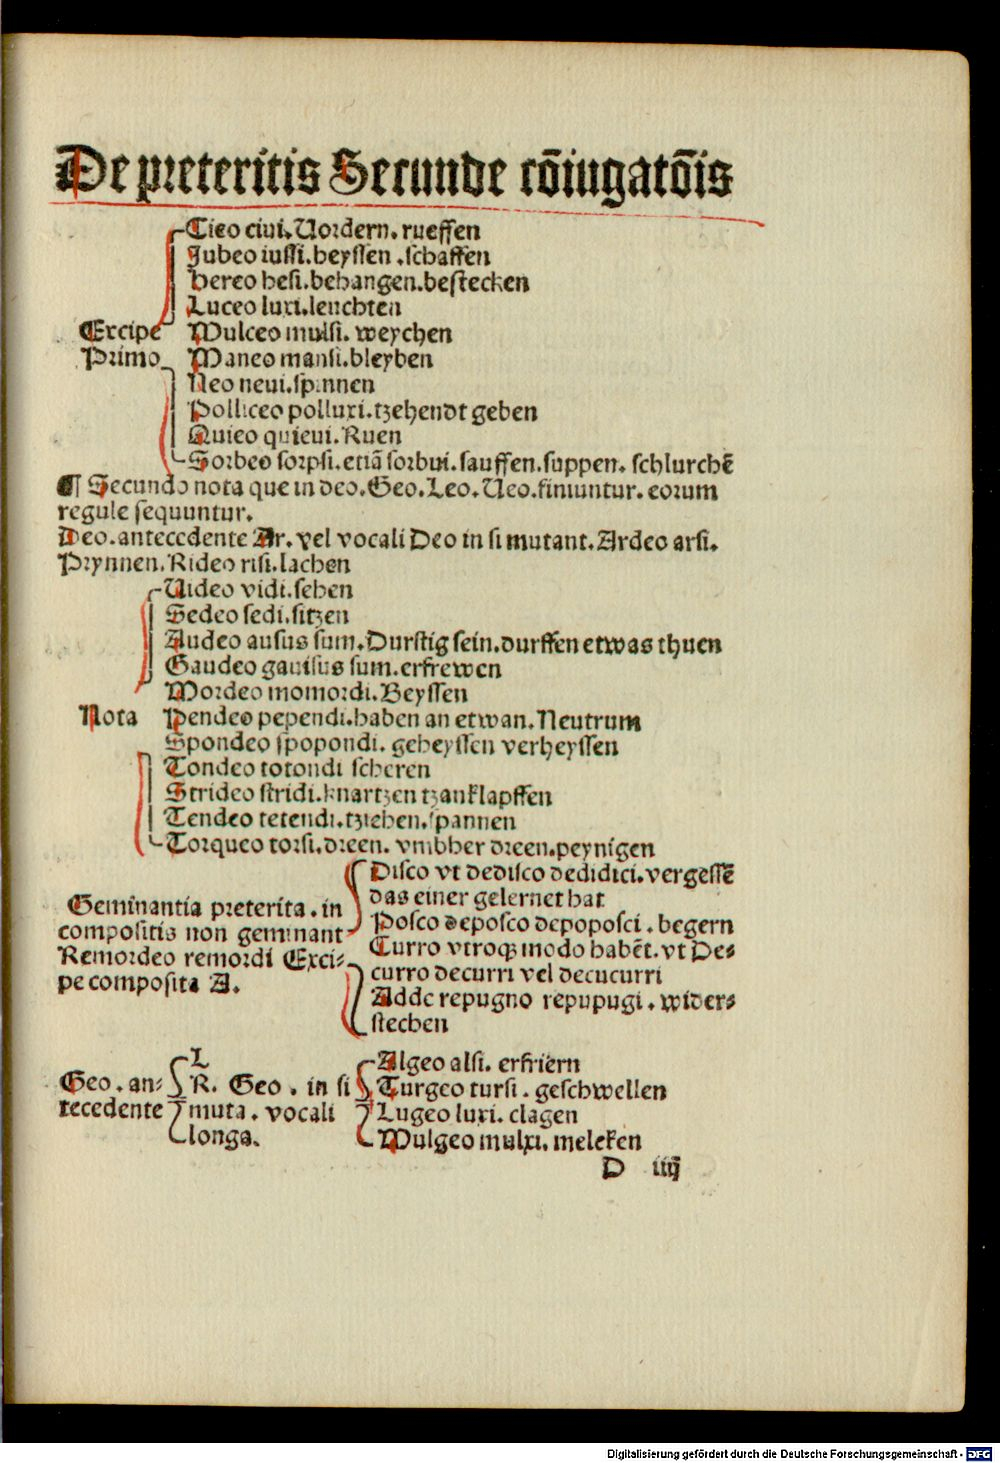 De preteritis Secunde cōiugatōis
Cieo ciui. Uordern. rueffen
Jubeo iussi. heyssen . schaffen
hereo hesi. behangen. bestecken
Luceo luxi. leuchten
Excipe Mulceo mulsi. weychen
Primo Maneo mansi. bleyben
Neo neui. spinnen
Polliceo polluxi. tzehendt geben
Quieo quieui. Ruen
Sorbeo sorpsi. etiā sorbui. sauffen. suppen. schlurchē
¶ Secundo nota que in deo. Geo. Leo. Ueo. finiuntur. eorum
regule sequuntur.
Deo. antecedente Ar. vel vocali Deo in si mutant. Ardeo arsi.
Prynnen. Rideo risi. lachen
Uideo vidi. sehen
Sedeo sedi. sitzen
Audeo ausus sum. Durstig sein. durffen etwas thuen
Gaudeo gauisus sum. erfrewen
Mordeo momordi. Beyssen
Nota Pendeo pependi. haben an etwan. Neutrum
Spondeo spopondi. geheyssen verheyssen
Tondeo totondi scheren
Strideo stridi. knartzen tzanklapffen
Tendeo tetendi. tziehen. spannen
Torqueo torsi. dreen. vmbher dreen. peynigen
Geminantia preterita . in
compositis non geminant
Remordeo remordi Exci-
pe composita A.
Disco vt dedisco dedidici. vergessē
das einer gelernet hat
Posco deposco depoposci . begern
Curro vtroqꝫ modo habēt. vt De-
curro decurri vel decucurri
Adde repugno repupugi . wider-
stechen
Geo . an-
tecedente
L
R. Geo . in si
muta . vocali
longa.
Algeo alsi. erfriern
Turgeo tursi . geschwellen
Lugeo luxi. clagen
Mulgeo mulxi. meleken
D iiij
Digitalisierung gefördert durch die Deutsche Forschungsgemeinschaft - DFG